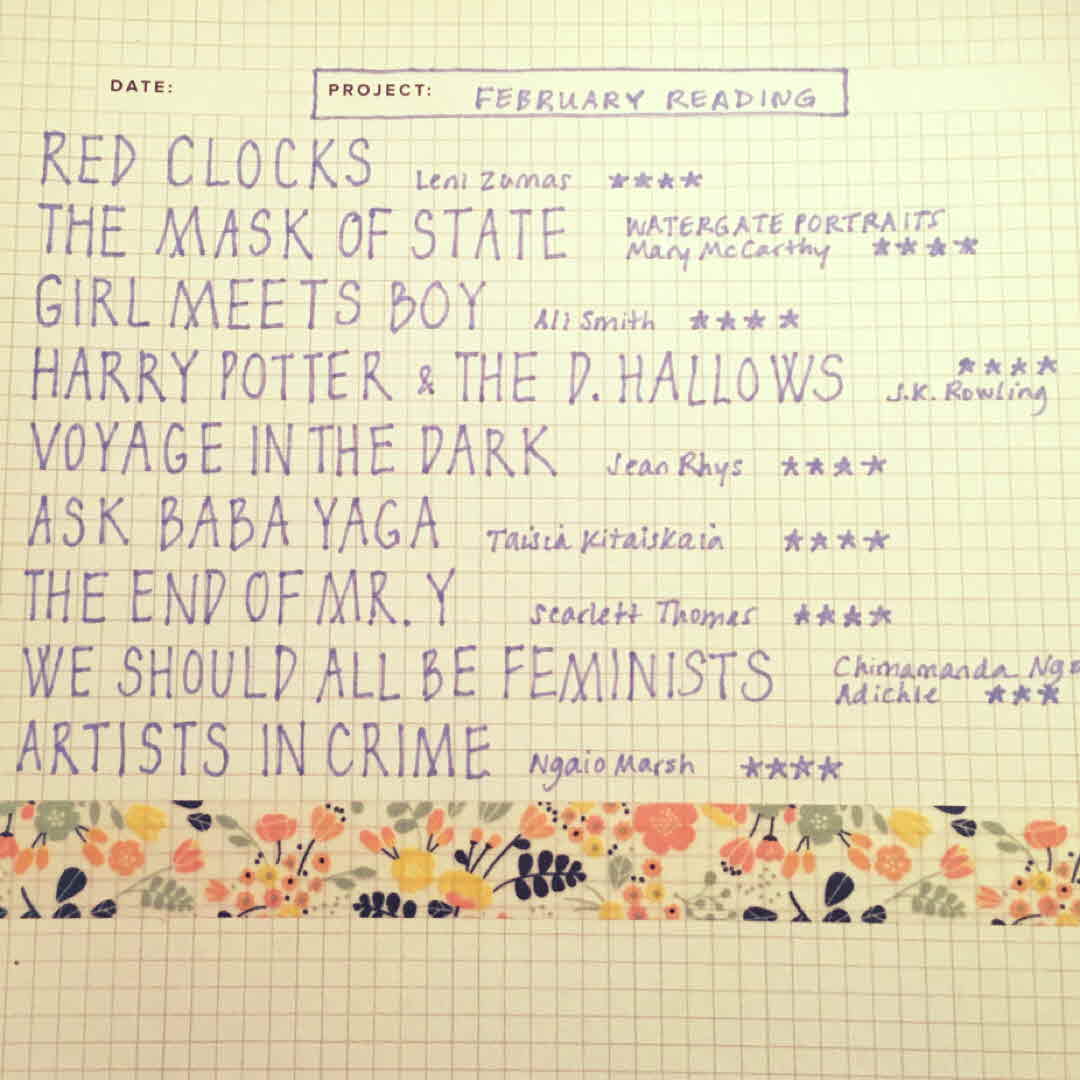 DATE: PROJECT: FEBRUARY READING
RED CLOCKS Leni Zumas ★★★★
THE MASK OF STATE WATERGATE PORTRAITS
Mary McCarthy ★★★★
GIRL MEETS BOY Ali Smith ★★★★
HARRY POTTER & THE D. HALLOWS ★★★★
J.K. Rowling
VOYAGE IN THE DARK Jean Rhys ★★★★
ASK BABA YAGA Taisia Kitaiskaia ★★★★
THE END OF MR. Y Scarlett Thomas ★★★★
WE SHOULD ALL BE FEMINISTS Chimamanda Ngo
Adichie ★★★
ARTISTS IN CRIME Ngaio Marsh ★★★★